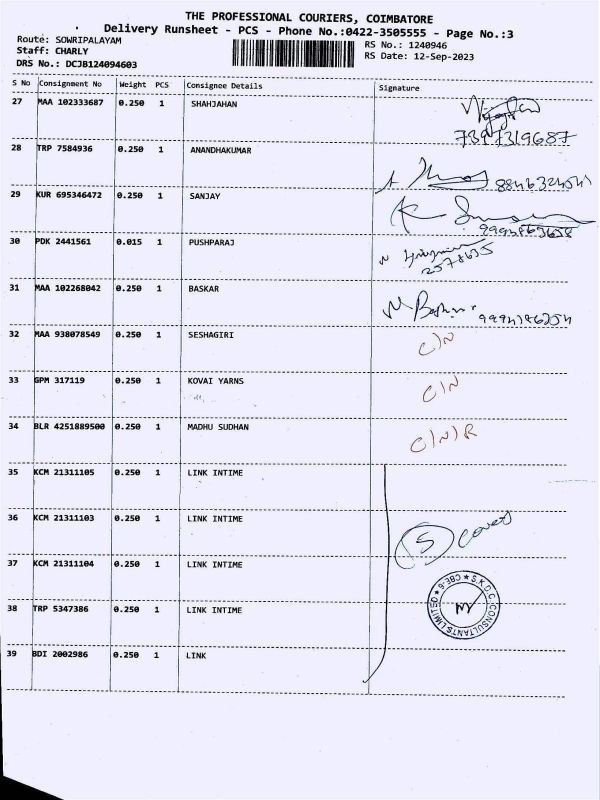 THE PROFESSIONAL COURIERS, COIMBATORE
Delivery Runsheet - PCS - Phone No.:0422-3505555 - Page No.:3
Route: SOWRIPALAYAM
RS No.: 1240946
Staff: CHARLY
RS Date: 12-Sep-2023
DRS No.: DCJB124094603
S No Consignment No Weight PCS Consignee Details Signature
27 MAA 102333687 0.250 1 SHAHJAHAN
28 TRP 7584936 0.250 1 ANANDHAKUMAR
29 KUR 695346472 0.250 1 SANJAY
30 PDK 2441561 0.015 1 PUSHPARAJ
31 MAA 102268042 0.250 1 BASKAR
32 MAA 938078549 0.250 1 SESHAGIRI C/N
33 GPM 317119 0.250 1 KOVAI YARNS C/N
34 BLR 4251889500 0.250 1 MADHU SUDHAN C/N/R
35 KCM 21311105 0.250 1 LINK INTIME
36 KCM 21311103 0.250 1 LINK INTIME 5 Cover
37 KCM 21311104 0.250 1 LINK INTIME
38 TRP 5347386 0.250 1 LINK INTIME
S.K.D.C. CONSULTANTS LIMITED ★ CBE-6 ★
39 BDI 2002986 0.250 1 LINK